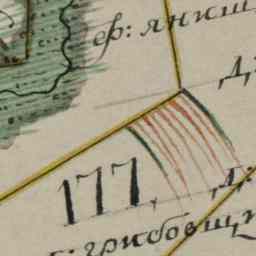 еф: яниш
Д:
177, Д:
: грибовщи